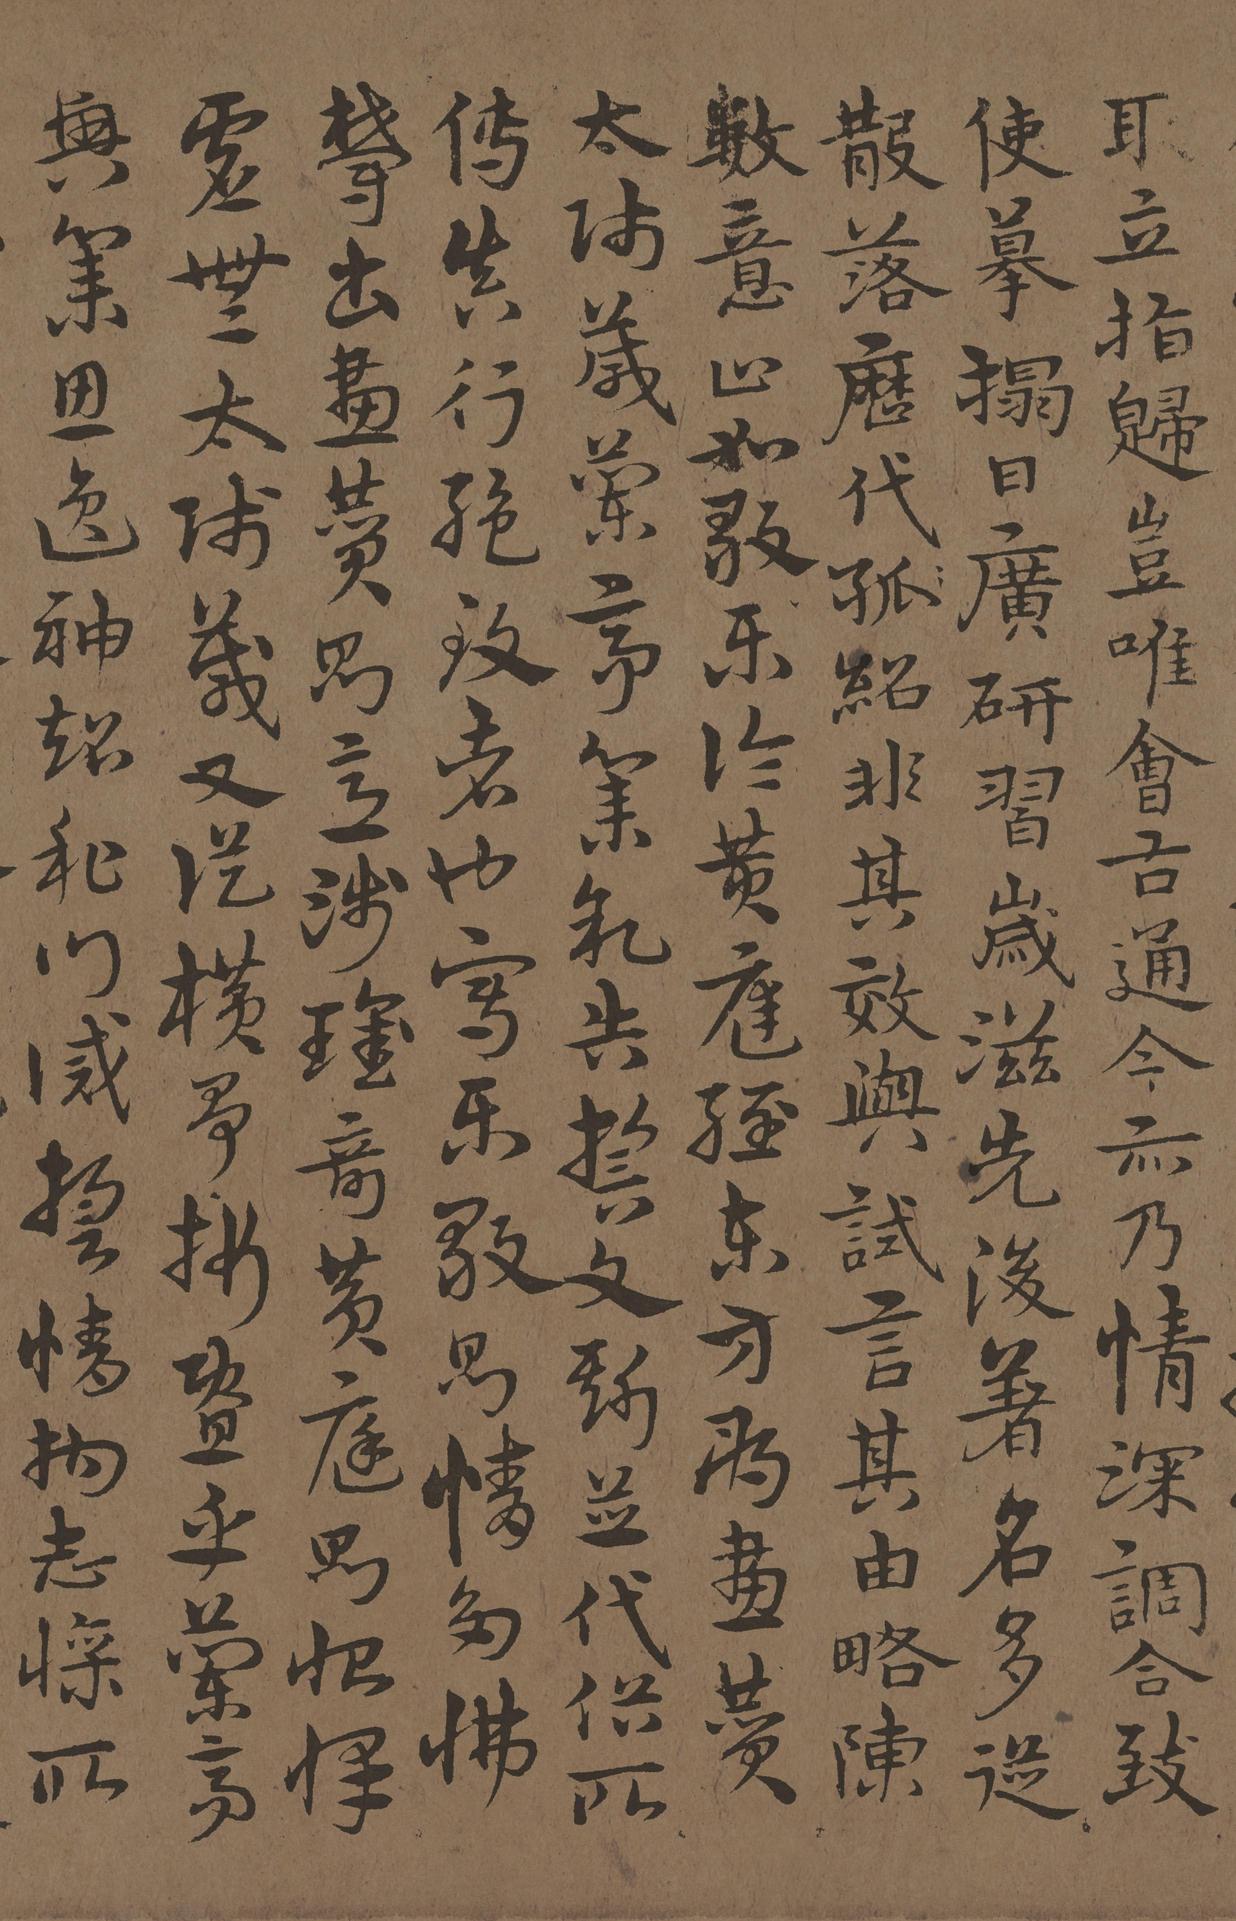 取立指歸豈唯會古通今亦乃情深調合致
使摹搨日廣研習歲滋先後著名多從
散落歷代孤紹非其效歟試言其由略陳
數意止如毅樂論黃庭經東方朔畫贊
太師箴蘭亭集序告誓文斯並代俗所
傳真行絕致者也寫樂毅則情多怫
鬱書畫贊則意涉瓌奇黃庭則怡懌
虛無太師箴又從橫爭折暨乎蘭亭
興集思逸神超私門誡誓情拘志慘所